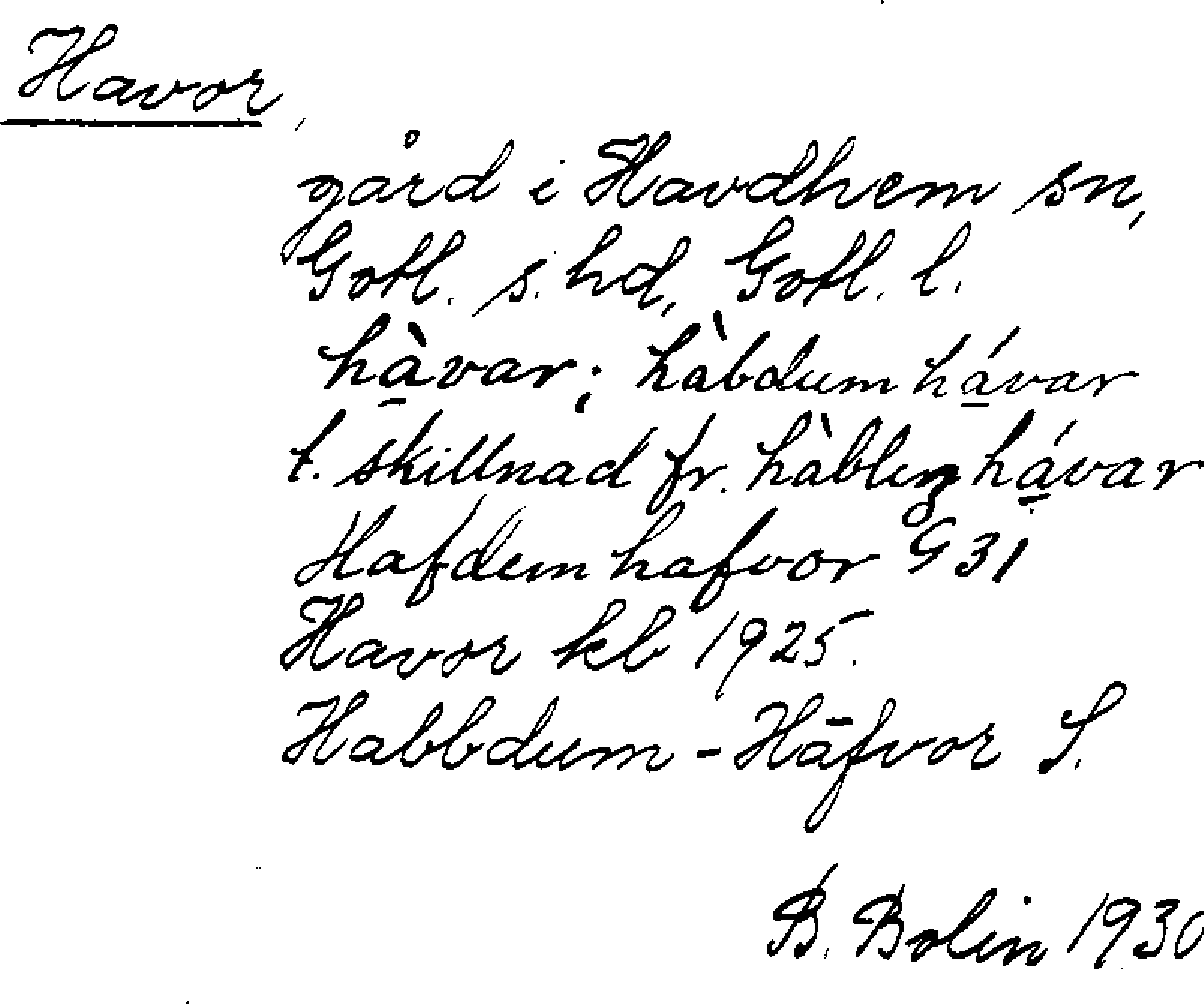 Havor,
gård i Havdhem sn,
Gotl. s. hd, Gotl. l.
hà̱var; hàbdum há̱var
t. skillnad fr. hàblıŋ há̱var
Hafdem hafvor G 31
Havor kb 1925.
Habbdum - Hāfvor S.
B. Bolin 1930